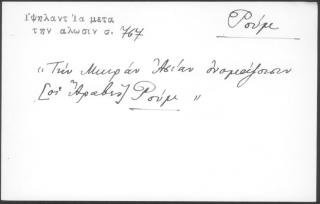 Ὑψηλαντ Ἰα μετα
την αλωσιν σ. 767
Ρούμ
« Τὴν Μικρὰν Ἀσίαν ὀνομάζουσιν
[οἱ Ἄραβες] Ρούμ »